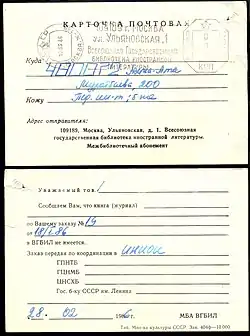 КАРТОЧКА ПОЧТОВАЯ
109189, МОСКВА
ул. Ульяновская, 1
Всесоюзная Государственная
библиотека иностранной
литературы
Куда
Алма-Ата
200
Кому
Адрес отправителя:
109189, Москва, Ульяновская, д. 1. Всесоюзная
государственная библиотека иностранной литературы.
Межбиблиотечный абонемент
Уважаемый тов.!
Сообщаем Вам, что книга (журнал)
по Вашему заказу № 19
от 18/I.86
в ВГБИЛ не имеется.
Заказ передан по координации в ИНИОН
ГПНТБ
ГЦНМБ
ЦНСХБ
Гос. б-ку СССР им. Ленина
28. 02 1986 г. МБА ВГБИЛ